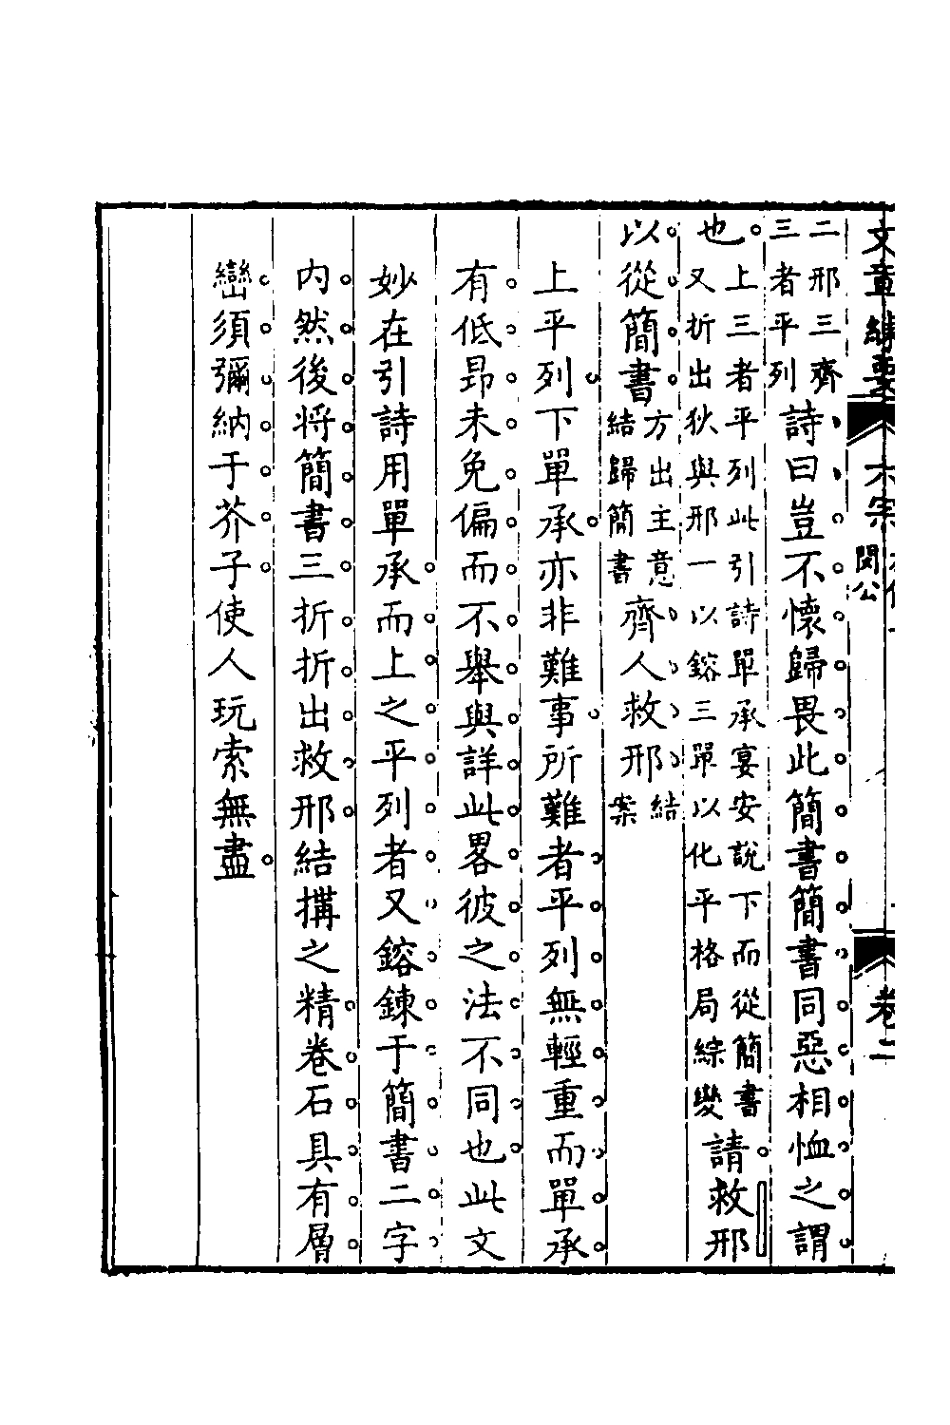 文章練要 六宗 閔公 卷二
二邢三齊
三者平列
詩曰豈不懷歸畏此簡書簡書同惡相恤之謂
也
上三者平列此引詩單承宴安說下而從簡書
又折出狄與邢一以鎔三單以化平格局綜變
請救邢
以從簡書
方出主意
結歸簡書
齊人救邢
結
案
上平列下單承亦非難事所難者平列無輕重而單承
有低昂未免偏而不舉與詳此畧彼之法不同也此文
妙在引詩用單承而上之平列者又鎔鍊于簡書二字
内然後將簡書三折折出救邢結搆之精卷石具有層
巒須彌納于芥子使人玩索無盡